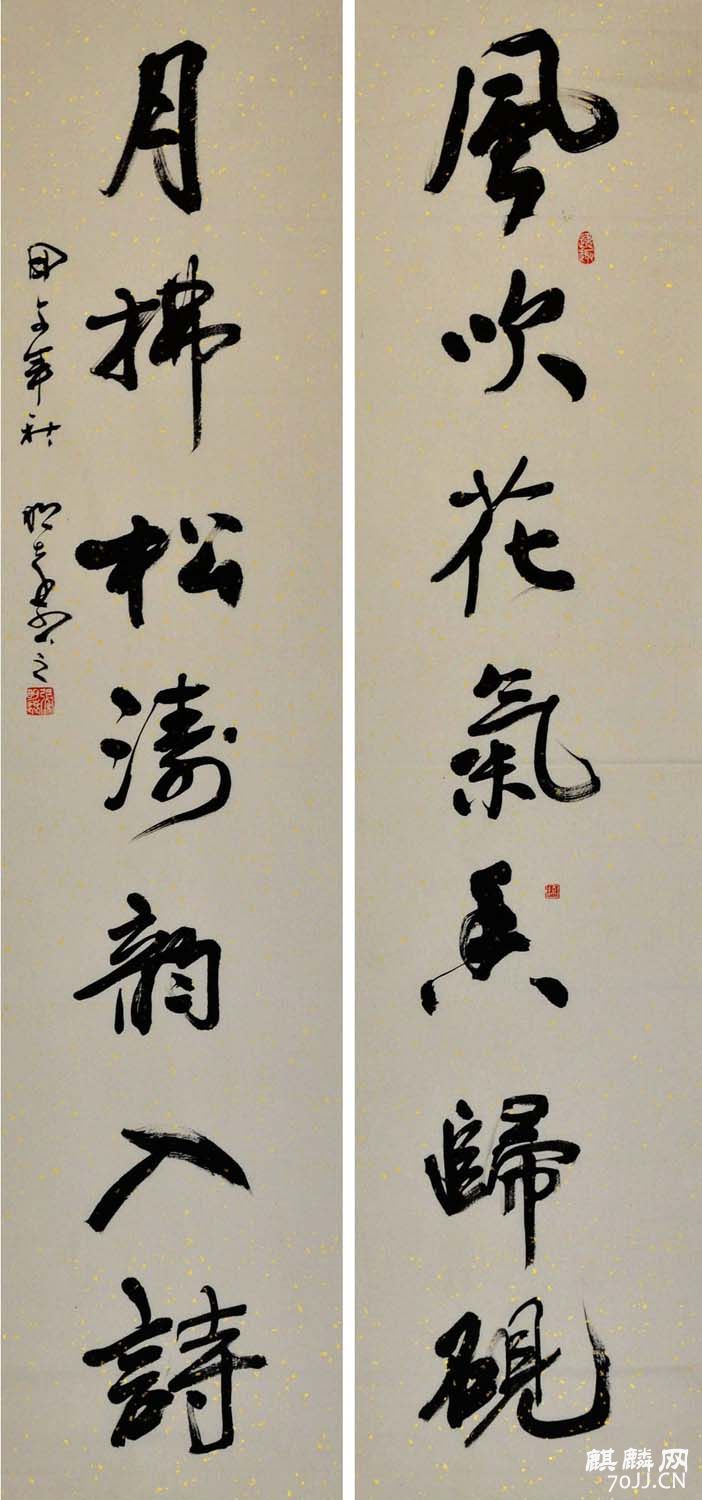 風吹花氣香歸硯
月拂松濤韵入詩
年秋
之
麒麟网
70JJ.CN